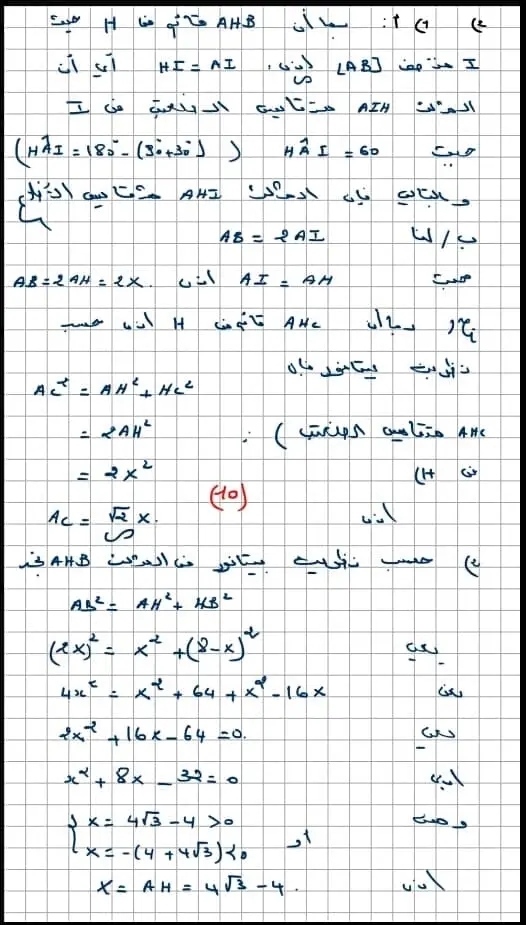 2) 1) أ: بما أن AHB قائم في H حيث
I منتصف [AB] إذن، HI = AI أي أن
المثلث AIH متقايس الضلعين في I
حيث HÂI = 60 (HÂI = 180° - (90° + 30°))
وبالتالي فإن المثلث AHI متقايس الأضلاع
ب/ لنا AB = 2AI
حيث AI = AH إذن AB = 2AH = 2x.
ج/ بما أن AHC قائم في H إذن حسب
نظرية بيتاغور فإن
AC² = AH² + HC²
= 2AH² (AHC متقايس الضلعين
= 2x² في H)
(10)
إذن AC = √2 x.
2) حسب نظرية بيتاغور في المثلث AHB نجد
AB² = AH² + HB²
يعني (2x)² = x² + (8-x)²
يعني 4x² = x² + 64 + x² - 16x
يعني 2x² + 16x - 64 = 0.
أي x² + 8x - 32 = 0
ومنه x = 4√3 - 4 > 0
أو x = -(4 + 4√3) < 0
إذن x = AH = 4√3 - 4.